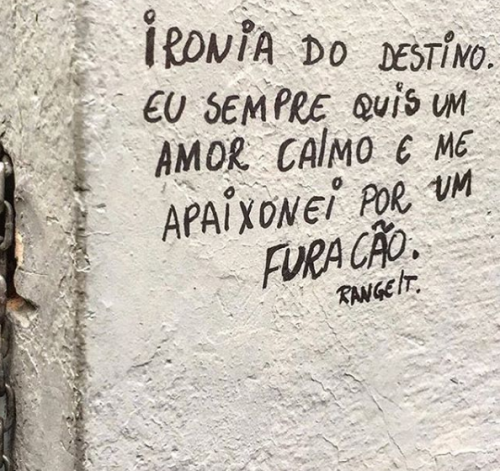 iRONiA DO DESTiNO.
EU SEMPRE QUiS UM
AMOR CAlMO E ME
APAiXONEi POR UM
FURACÃO.
RANGElT.